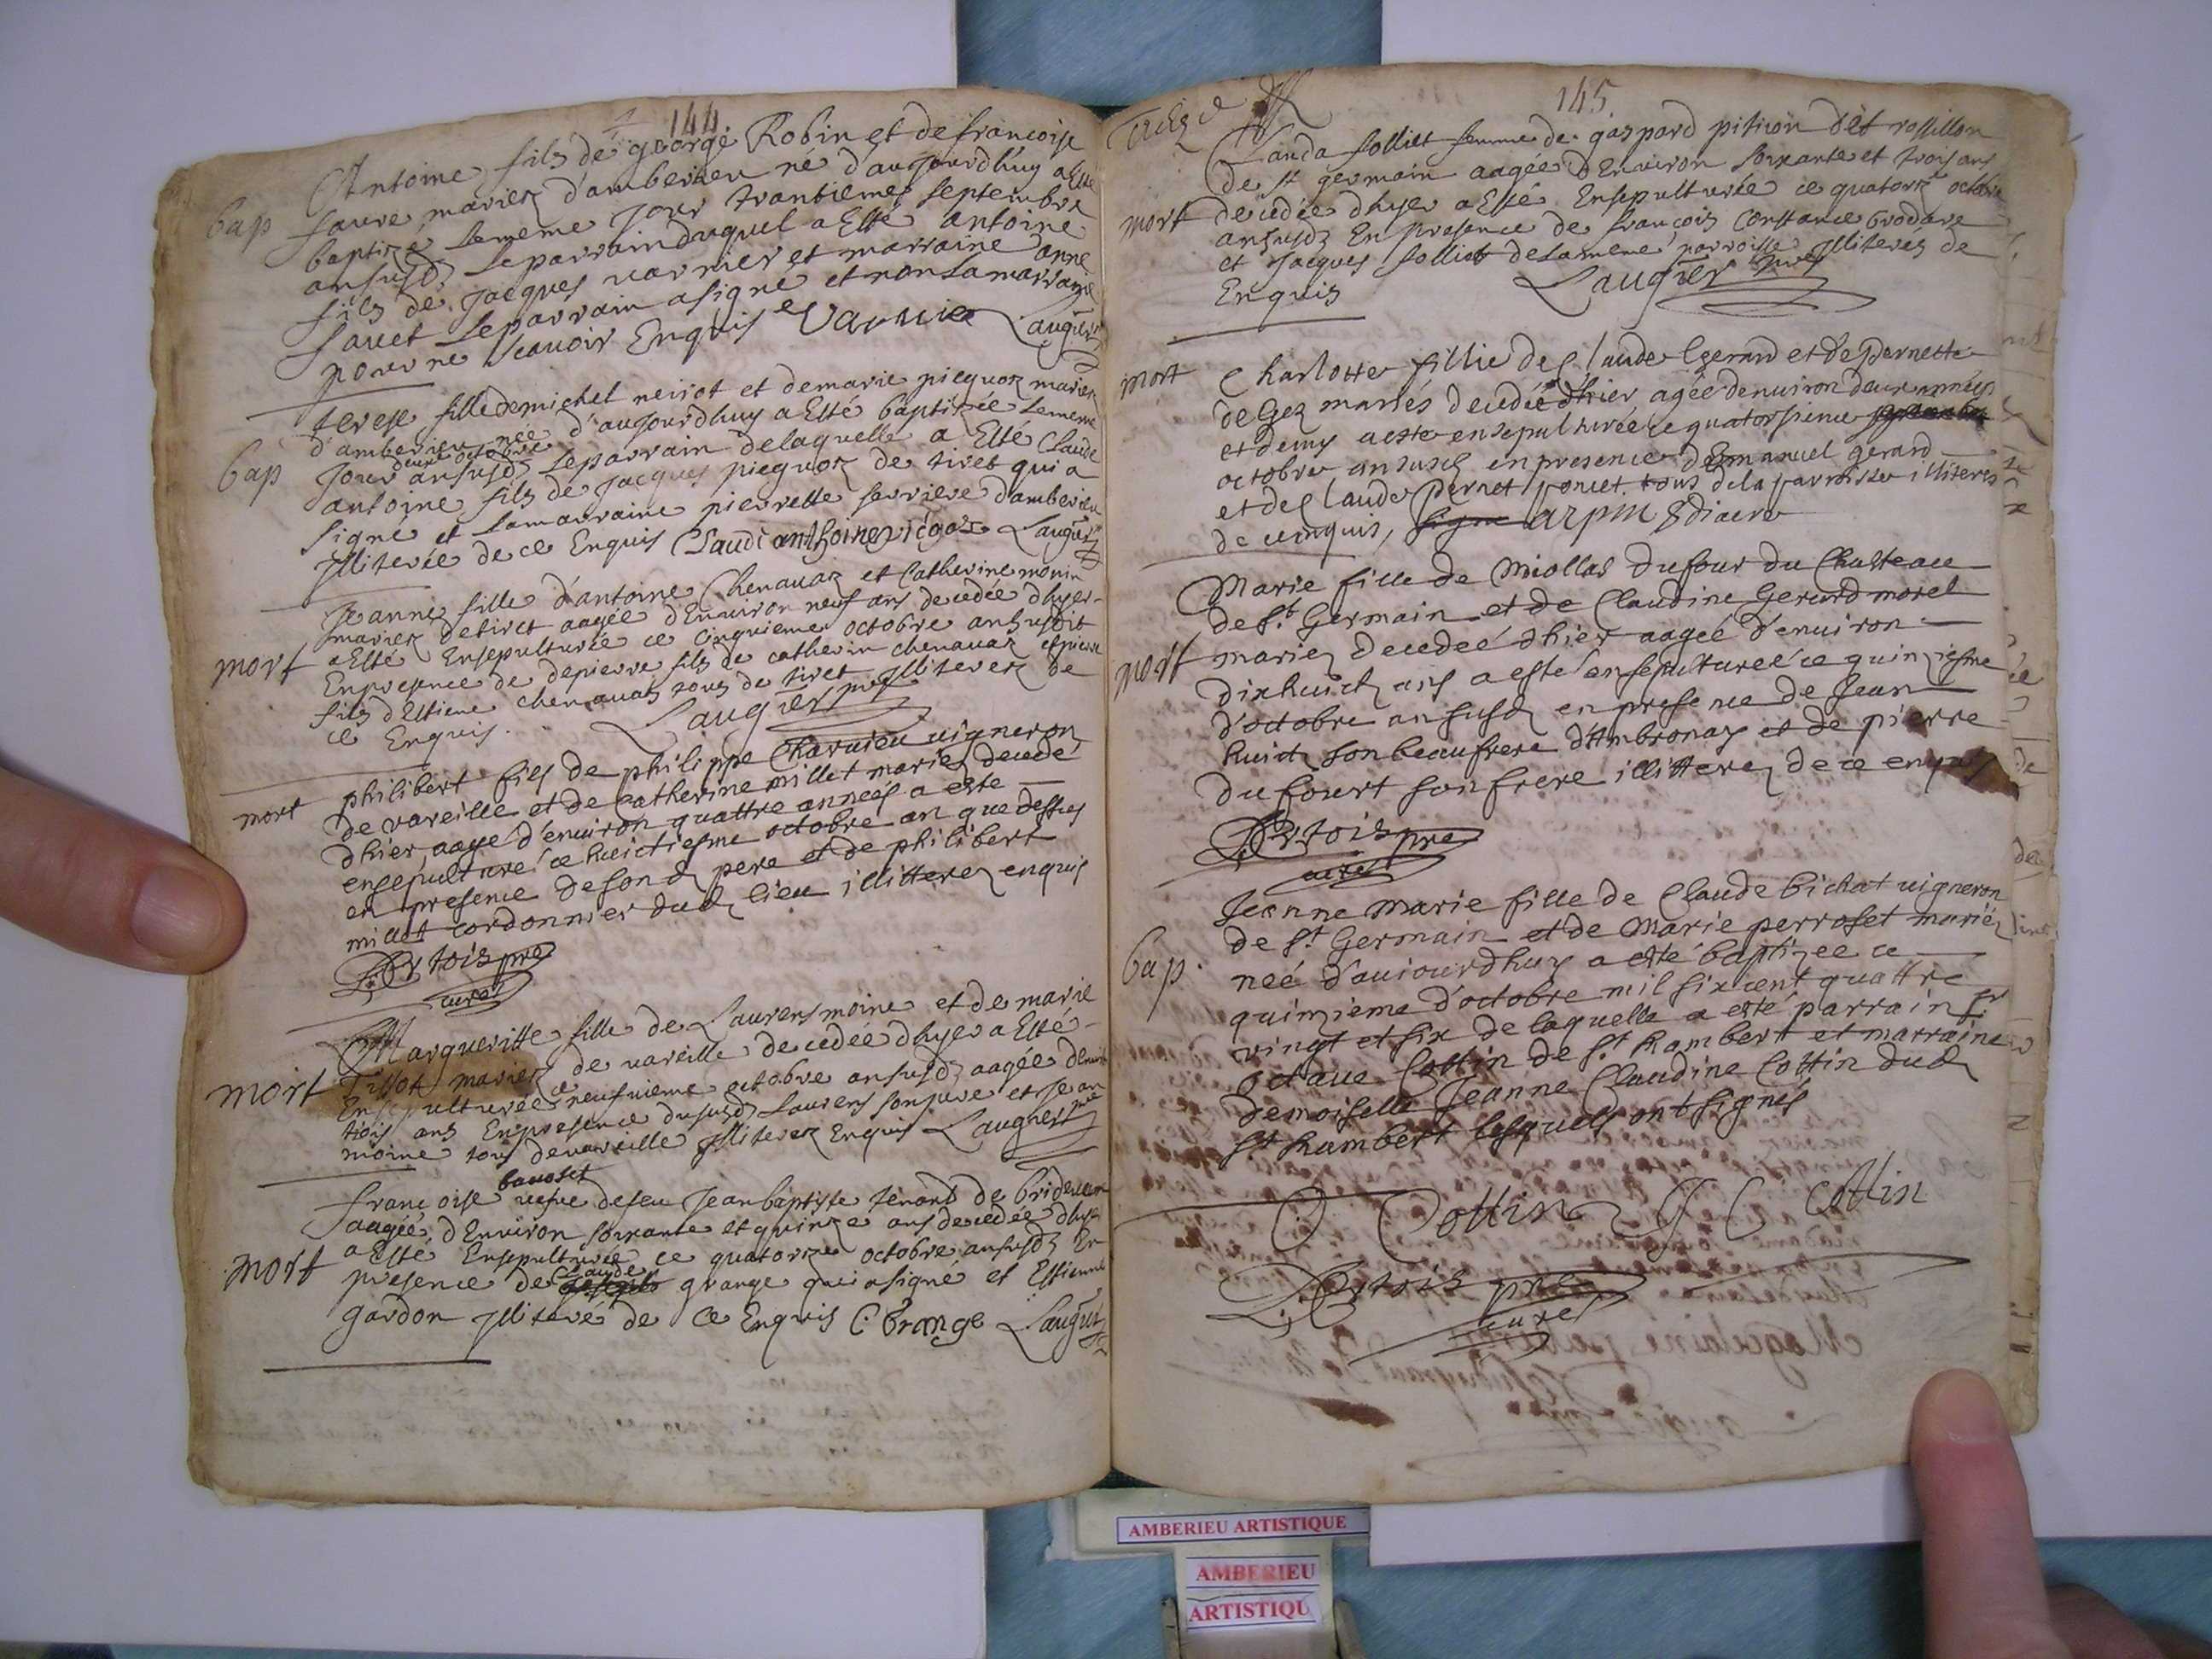 144
Antoine fils de george Robin et de francoise
bap
faure mariez d'amberieu né d'aujourdhuy a Esté
baptizé le meme Jour trantieme septembre
an susdz Le parrain duquel a Esté antoine
fils de Jacques varnier et marraine anne
sauet Le parrain a signé et non La marraine
pour ne scavoir Enquis Varnier Laugier
terese fille de michel neirot et de marie picquoz mariez
d'amberieu née d'aujourdhuy a Esté baptizée Le meme
bap
Jour deux octobre an susdz Le parrain de laquelle a Esté Claude
antoine fils de Jacques picquoz de tiret qui a
signé et La marraine pierrette serriere d'amberieu
Illiterée de ce Enquis Claude anthoine picgoz Laugier
Jeanne fille d'antoine Chenauaz et Catherine monin
mariez de tiret aagée d'Enuiron neuf ans decedée d'hyer
mort
a Esté Ensepulturée ce cinquieme octobre an susdit
En presence de pierre fils de catherin chenauaz et pierre
fils d'Estiene chenauaz tous de tiret Illiterez de
ce Enquis. Laugier pre
mort
philibert fils de philippe Charuieu uigneron
de vareille et de catherine millet mariez decedé
dhier aagé d'enuiron quattre années a esté
ensepulturé ce huictiesme octobre an que dessus
en presence de sond pere et de philibert
millet cordonnier dud lieu illitterez enquis
Dertois pre
curé
Margueritte fille de Laurens moine et de marie
mort
tissot mariez de uareille decedée d'hyer a Esté
Ensepulturée ce neufuieme octobre an susdz aagée d'enuiron
trois ans En presence du susdz Laurens son pere et Jean
moine tous de uareille Illiterez Enquis Laugier pre
bauoset
francoise uefue de feu Jean baptiste tenant de brideuan
aagée d'Enuiron soixante et quinze ans decedée d'hyer
mort
a Esté Ensepulturée ce quatorze octobre an susdz En
presence de Claude grange qui a signé et Estienne
gardon Illiteré de ce Enquis C. Grange Laugier
145
Clauda folliet femme de gaspard pition dit rossillon
de st germain aagée d'Enuiron soixante et trois ans
mort
decedée d'hyer a Esté Ensepulturée ce quatorze octobre
an susdz En presence de francois Constance brodare
et Jacques folliet de la meme parroisse Illiterez de
Enquis Laugier pre
mort
Charlotte fillie de Claude Gerard et de pernette
de Gez mariés decedée dhier agée denuiron deux années
et demy a esté ensepulturée ce quatorsieme
octobre an susd en presence d'Emanuel gerard
et de Claude pernet tous de la parroisse illiteres
de ce enquis, arpin Sdiacre
Marie fille de Miollas Dufour du Chasteau
de St. Germain et de Claudine Gerard morel
mort
mariez decedeé dhier aagée d'enuiron
dixhuict ans a esté ensepulturée ce quinziesme
d'octobre an susd en presence de Jean
huict son beaufrere d'Ambronay et de pierre
du fourt son frere illitterez de ce enquis
Dertois pre
curé
Jeanne Marie fille de Claude bichat uigneron
de St. Germain et de Marie perroset mariéz
bap.
neé d'aujourdhuy a esté baptizee ce
quinzieme d'octobre mil six cent quattre
vingt et six de laquelle a esté parrain sr
octaue Cottin de St. Rambert et marraine
demoiselle Jeanne Claudine Cottin dud
St Rambert lesquels ont signés
O Cottin J C Cottin
Dertois pre
curé
AMBERIEU ARTISTIQUE
AMBERIEU
ARTISTIQU